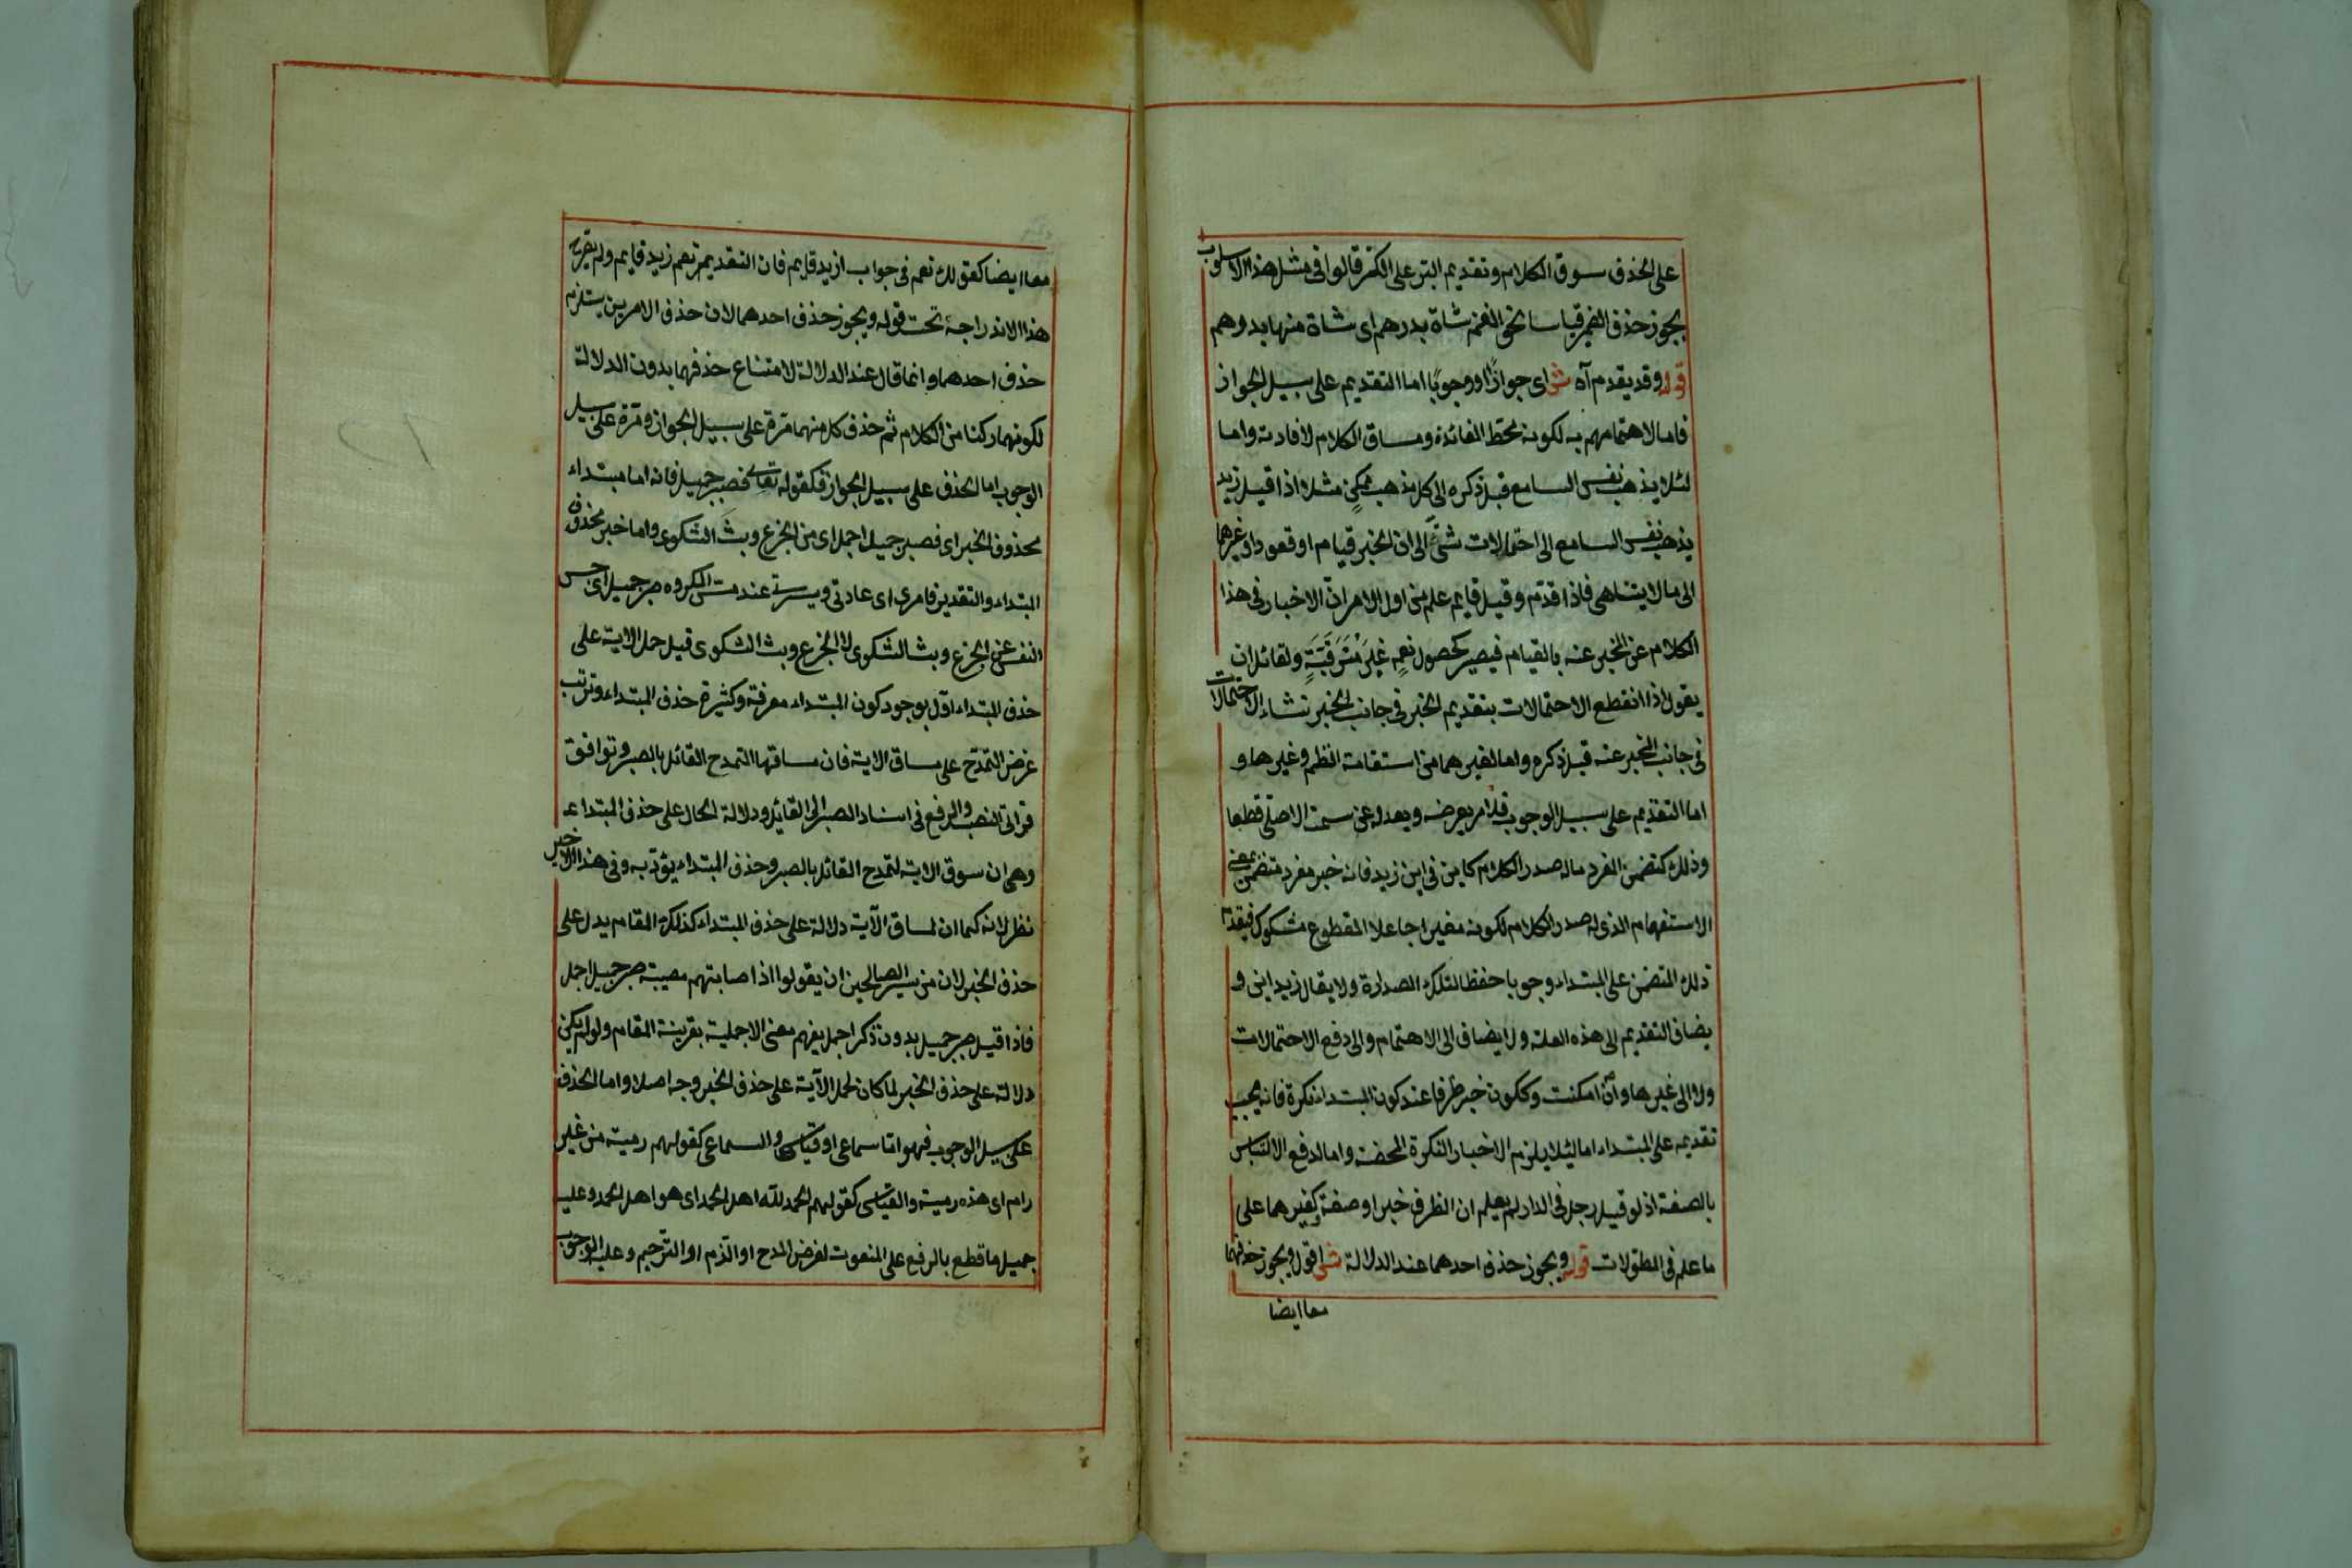 على الحذف سوق الكلام وتقديم البر على الكر قالوا فى مثل هذا الاسلوب
يجوز حذف الضمير قياسا نحو الغنم شاة بدرهم اى شاة منها بدرهم
قوله وقد يقدم آه ش اى جوازًا او وجوبًا اما التقديم على سبيل الجواز
فاما لاهتمامهم به لكونه محط الفائدة ومساق الكلام لافادته واما
لئلا يذهب نفس السامع قبل ذكره الى كل مذهب ممكن مثلا اذا قيل زيد
يذهب نفس السامع الى احتمالات شتى الى ان الخبر قيام او قعود او غيرهما
الى مالا يتناهى فاذا قدم وقيل قايم علم من اول الامر ان الاخبار فى هذا
الكلام عن المخبر عنه بالقيام فيصير كحصول نعم غير مترقبة ولقائل ان
يقول اذا انقطع الاحتمالات بتقديم الخبر فى جانب الخبر نشاء الاحتمالات
فى جانب المخبر عنه قبل ذكره واما لغيرهما من استقامة النظم وغيرها و
اما التقديم على سبيل الوجوب فلامر يعرضه ويعدله عن سمت الاصلى قطعا
وذلك كتضمن المفرد ماله صدر الكلام كاين فى اين زيد فانه خبر مفرد متضمن بمعنى
الاستفهام الذى له صدر الكلام لكونه مغيرا جاعلا المقطوع مشكوك فيقدم
ذلك المتضمن على المبتداء وجوبا حفظا لتلك الصدارة ولا يقال زيد اين و
يضاف التقديم الى هذه العلة ولا يضاف الى الاهتمام والى دفع الاحتمالات
ولا الى غيرها وان امكنت وككون خبر ظرفا عند كون المبتداء نكرة فانه يجب
تقديمه على المبتداء اما لئلا يلزم الاخبار النكرة المحضة واما لدفع الالتباس
بالصفة اذ لو قيل رجل فى الدار لم يعلم ان الظرف خبر او صفة ولغيرهما على
ما علم فى المطولات قوله ويجوز حذف احدهما عند الدلالة ش اقول ويجوز حذفهما
معا ايضا
معا ايضا كقولك نعم فى جواب ازيد قايم فان التقدير نعم زيد قايم ولم
هذا الاندراجه تحت قوله ويجوز حذف احدهما لان حذف الامرين يستلزم
حذف احدهما وانما قال عند الدلالة لامتناع حذفهما بدون الدلالة
لكونهما ركنا من الكلام ثم حذف كل منهما مرة على سبيل الجواز ومرة على سبيل
الوجوب اما الحذف على سبيل الجواز فكقوله تعالى فصبر جميل فانه اما مبتداء
محذوف الخبر اى فصبر جميل اجمل اى من الجزع وبث الشكوى واما خبر محذوف
المبتداء والتقدير فامرى اى عادتى وسيرتى عند مس المكروه صبر جميل اى حبس
النفس عن الجزع وبث الشكوى لا الجزع وبث الشكوى قيل حمل الاية على
حذف المبتداء اولى لوجود كون المبتداء معرفة وكثيرة حذف المبتداء وترتب
غرض التمدح على مساق الاية فان مساقها التمدح القائل بالصبر وتوافق
قرائى النصب والرفع فى اسناد الصبر الى القايل ودلالة الحال على حذف المبتداء
وهى ان سوق الاية لتمدح القائل بالصبر وحذف المبتداء يؤذن به وفى هذا الاخير
نظر لانه كما ان لمساق الآية دلالة على حذف المبتداء كذلك المقام يدل على
حذف الخبر لان من سير الصالحين ان يقولوا اذا صابتهم مصيبة صبر جميل اجمل
فاذا قيل صبر جميل بدون ذكر اجمل يفهم معنى الاجملية بقرينة المقام ولو لم يكن
دلالة على حذف الخبر لما كان لحمل الآية على حذف الخبر وجه اصلا واما الحذف
على سبيل الوجوب فهو اما سماعى او قياسى والسماعى كقولهم رمية من غير
رام اى هذه رمية والقياسى كقولهم الحمد لله اهل الحمد اى هو اهل الحمد وعليه
جميل ما قطع بالرفع على المنعوت لغرض المدح او الذم او الترحيم وعليه الوجوب